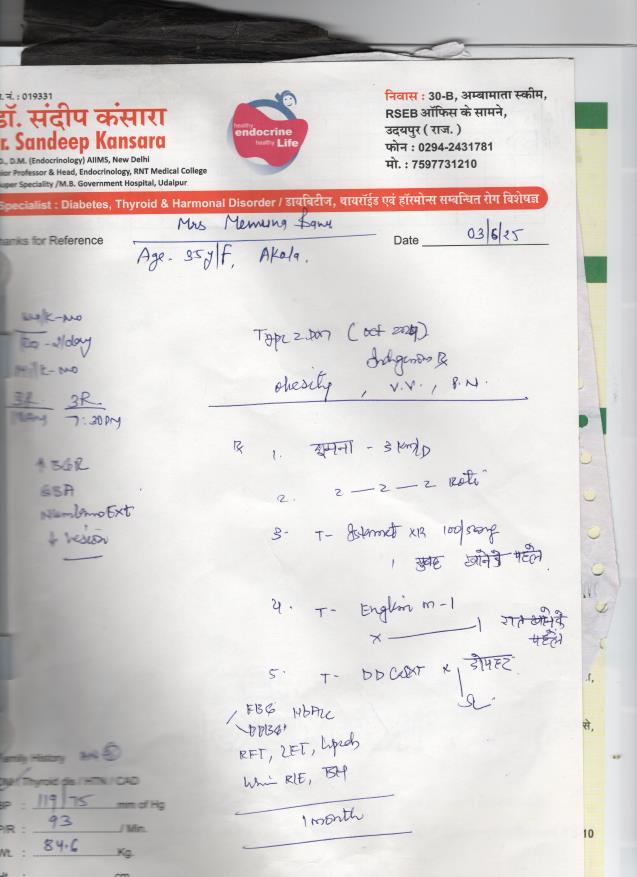 नं. : 019331
डॉ. संदीप कंसारा
Dr. Sandeep Kansara
D.M. (Endocrinology) AIIMS, New Delhi
Professor & Head, Endocrinology, RNT Medical College
Super Speciality /M.B. Government Hospital, Udaipur
healthy
endocrine
healthy Life
निवास : 30-B, अम्बामाता स्कीम,
RSEB ऑफिस के सामने,
उदयपुर ( राज. )
फोन : 0294-2431781
मो. : 7597731210
Specialist : Diabetes, Thyroid & Harmonal Disorder / डायबिटीज, थायरॉईड एवं हॉरमोन्स सम्बन्धित रोग विशेषज्ञ
Thanks for Reference
Mrs Memuna Banu
Date 03/6/25
Age - 35y/F, Akola.
-2/day
3R 3R
7:30PM
GSA
Numbness Ext
↓ vision
Type 2 DM (Oct 2024)
obesity, V.V., P.N.
Rx
1. घूमना - 3 km/D
2. 2 — 2 — 2 Roti
3- T- Istamet XR 100/500mg
1 सुबह खाने के पहले
4. T- M-1
x — 1 रात खाने के पहले
5. T- x दोपहर
FBG HbA1c
RFT, LFT, Lipids
Urine R/E,
1 month
Family History
DM / Thyroid dis / HTN / CAD
BP : 119/75 mm of Hg
P/R : 93 / Min.
Wt. : 84.6 Kg.
cm
से,
10